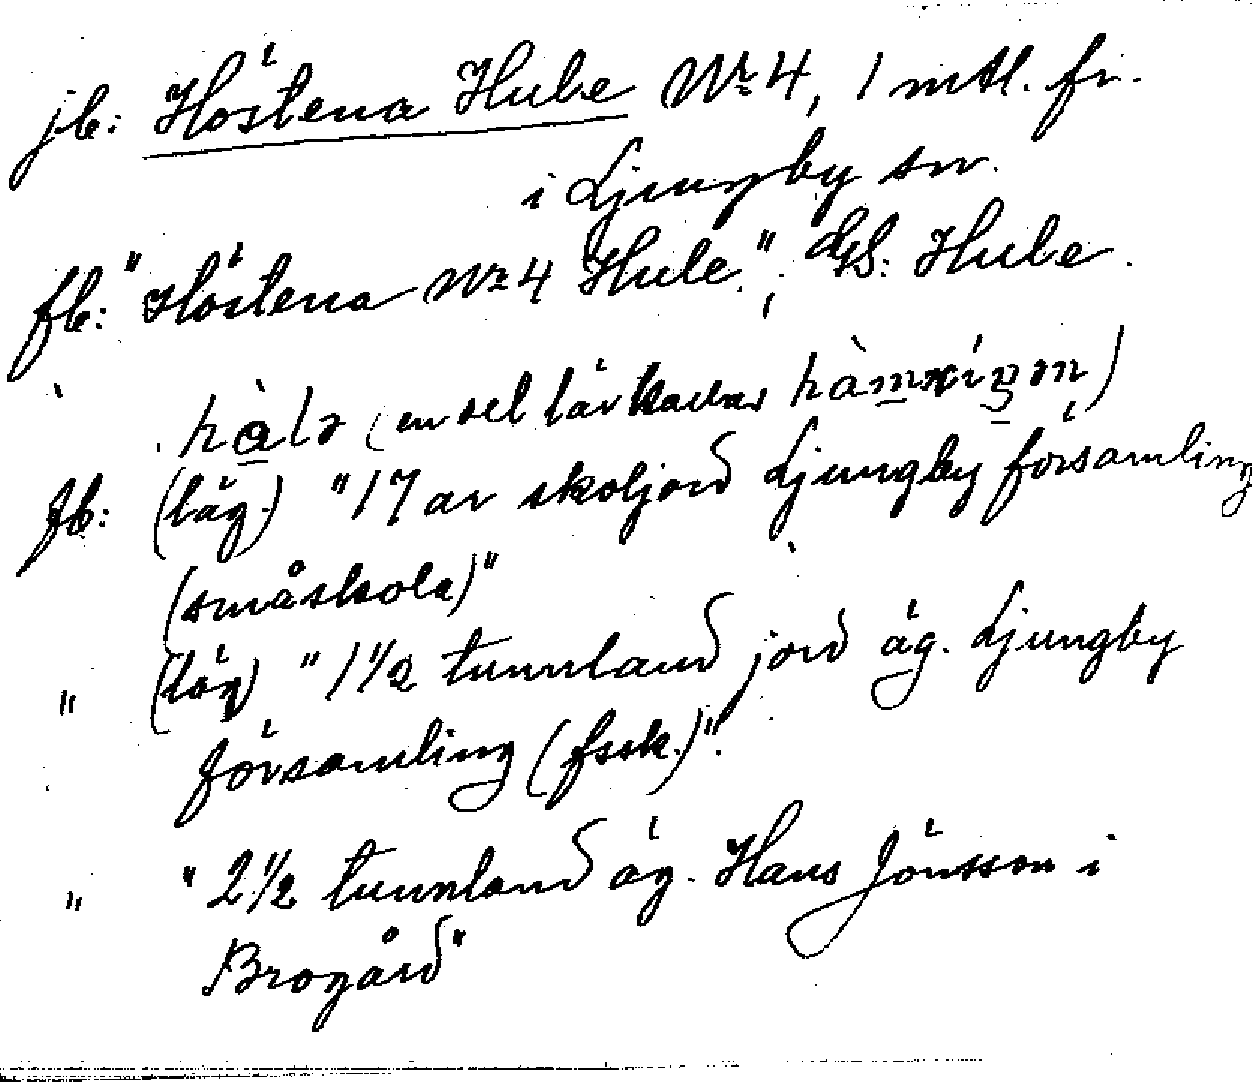 jb: Höstena Hule Nr 4, 1 mtl. fr.
i Ljungby sn.
fb: "Höstena Nr 4 Hule."; GS: Hule.
hàlə (en del
fb: (läg.) "17 ar skoljord Ljungby församling
(småskola)"
" (läg) "1 1/2 tunnland jord äg. Ljungby
församling (fssk.)".
" "2 1/2 tunnland äg. Hans Jönsson i
Brogård"